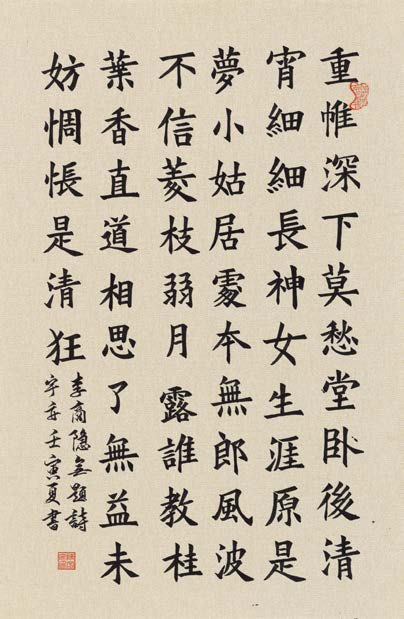 重帷深下莫愁堂卧後清
宵細細長神女生涯原是
夢小姑居處本無郎風波
不信菱枝弱月露誰教桂
葉香直道相思了無益未
妨惆悵是清狂
李商隱無題詩
壬寅夏書